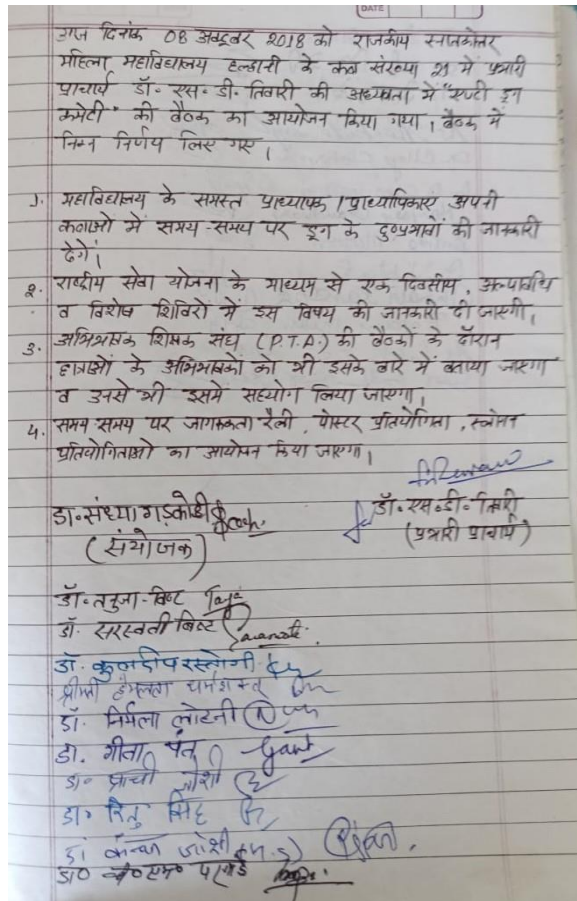 DATE
आज दिनांक 08 अक्टूबर 2018 को राजकीय स्नातकोत्तर
महिला महाविद्यालय हल्द्वानी के कक्ष संख्या 21 में प्रभारी
प्राचार्य डॉ० एस० डी० तिवारी की अध्यक्षता में "एण्टी ड्रग
कमेटी" की बैठक का आयोजन किया गया। बैठक में
निम्न निर्णय लिए गए।
1. महाविद्यालय के समस्त प्राध्यापक / प्राध्यापिकाएं अपनी
कक्षाओं में समय-समय पर ड्रग के दुष्प्रभावों की जानकारी
देंगे।
2. राष्ट्रीय सेवा योजना के माध्यम से एक दिवसीय, अल्पावधि
व विशेष शिविरों में इस विषय की जानकारी दी जाएगी।
3. अभिभावक शिक्षक संघ (P.T.A.) की बैठकों के दौरान
छात्राओं के अभिभावकों को भी इसके बारे में बताया जाएगा
व उनसे भी इसमें सहयोग लिया जाएगा।
4. समय-समय पर जागरूकता रैली, पोस्टर प्रतियोगिता, स्लोगन
प्रतियोगिताओं का आयोजन किया जाएगा।
डा० संध्या गड़कोटी डॉ० एस० डी० तिवारी
(संयोजक) (प्रभारी प्राचार्य)
डॉ० तनुजा बिष्ट
डॉ. सरस्वती बिष्ट
डॉ. कुलदीप रस्तोगी
श्रीमती हेमलता धर्मशक्तू
डॉ. निर्मला लोहनी
डॉ. गीता पंत
डा० प्राची जोशी
डा० रितु सिंह
जोशी
डा०